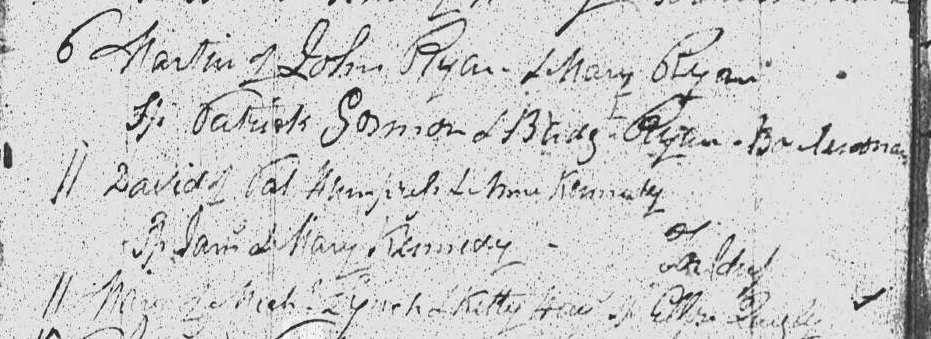 6 Martin of John Ryan & Mary Ryan
Sp Patrick Gorman & Bridgt Ryan -
11 David of Pat Humphreh & Anne Kennedy
Sp Jams & Mary Kennedy -
of
11 Mary of Michl Lynch & Kitty sp Ellen